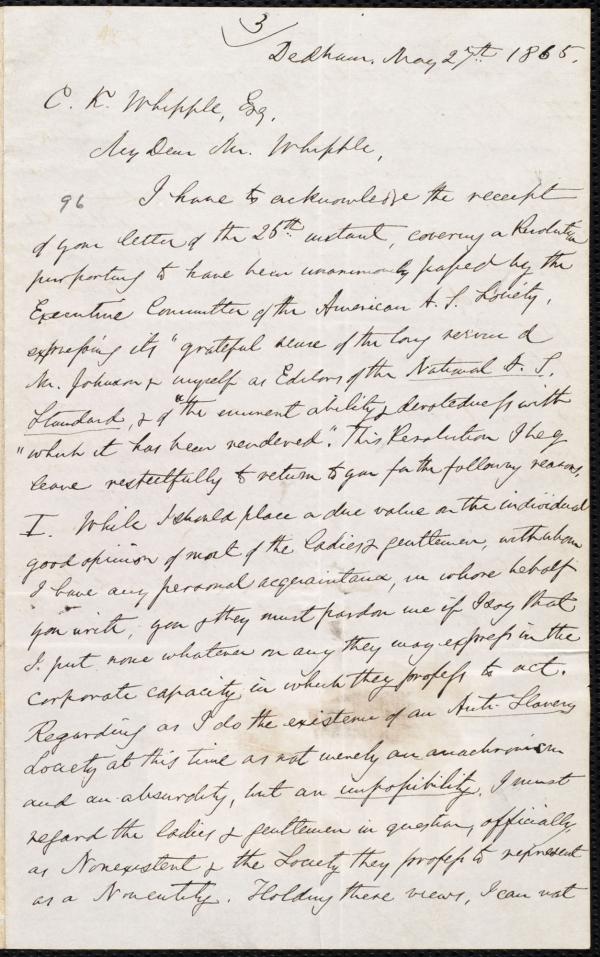 3
Dedham. May 27th. 1865.
C. K. Whipple, Esq.
My Dear Mr. Whipple,
96 I have to acknowledge the receipt
of your letter of the 26th. instant, covering a Resolution
purporting to have been unanimously passed by the
Executive Committee of the American A. S. Society,
expressing its "grateful sense of the long service of
Mr. Johnson & myself as Editors of the National A. S.
Standard, & of "the eminent ability & devotedness with
"which it has been rendered". This Resolution I beg
leave respectfully to return to you for the following reasons.
I. While I should place a due value on the individual
good opinion of most of the ladies & gentlemen, with whom
I have any personal acquaintance, in whose behalf
you write, you & they must pardon me if I say that
I put none whatever on any they may express in the
corporate capacity in which they profess to act.
Regarding as I do the existence of an Anti-Slavery
Society at this time as not merely an anachronism
and an absurdity, but an impossibility, I must
regard the ladies & gentlemen in question, officially,
as Nonexistent & the Society they profess to represent
as a Nonentity. Holding these views, I can not